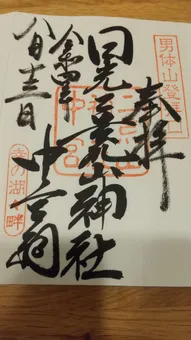 奉拝
男体山登拝
日光二荒山神社
中宮祠
幸の湖畔
八月十三日